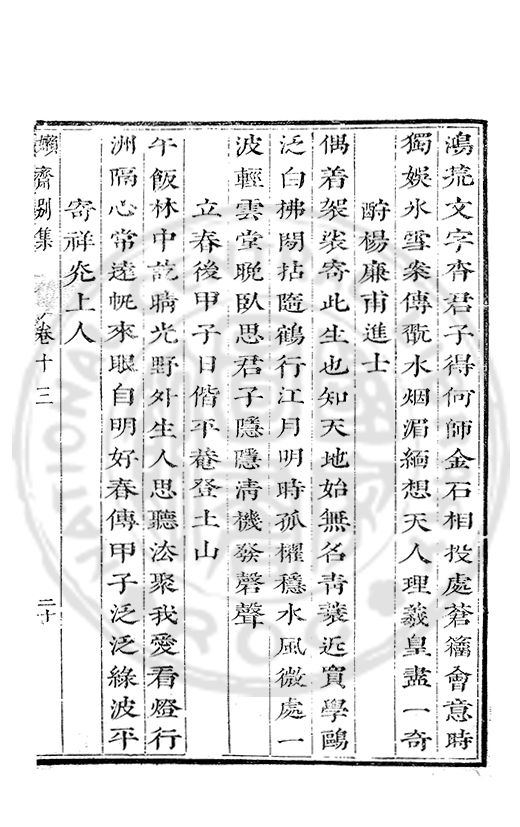 鴻荒文字杳君子得何師金石相投處蒼籀會意時
獨娛氷雪案傳翫水烟湄緬想天人理羲皇畫一奇
酧楊廉甫進士
偶着袈裟寄此生也知天地始無名青蓑近實學鷗
泛白拂閑拈隨鶴行江月明時孤櫂穩水風微處一
波輕雲堂晚臥思君子隱隱淸機發磬聲
立春後甲子日偕平菴登土山
午飯林中訖晴光野外生人思聽法聚我愛看燈行
洲隔心常達帆來眼自明好春傳甲子泛泛綠波平
寄祥允上人
嬾齋别集
卷十三
二十